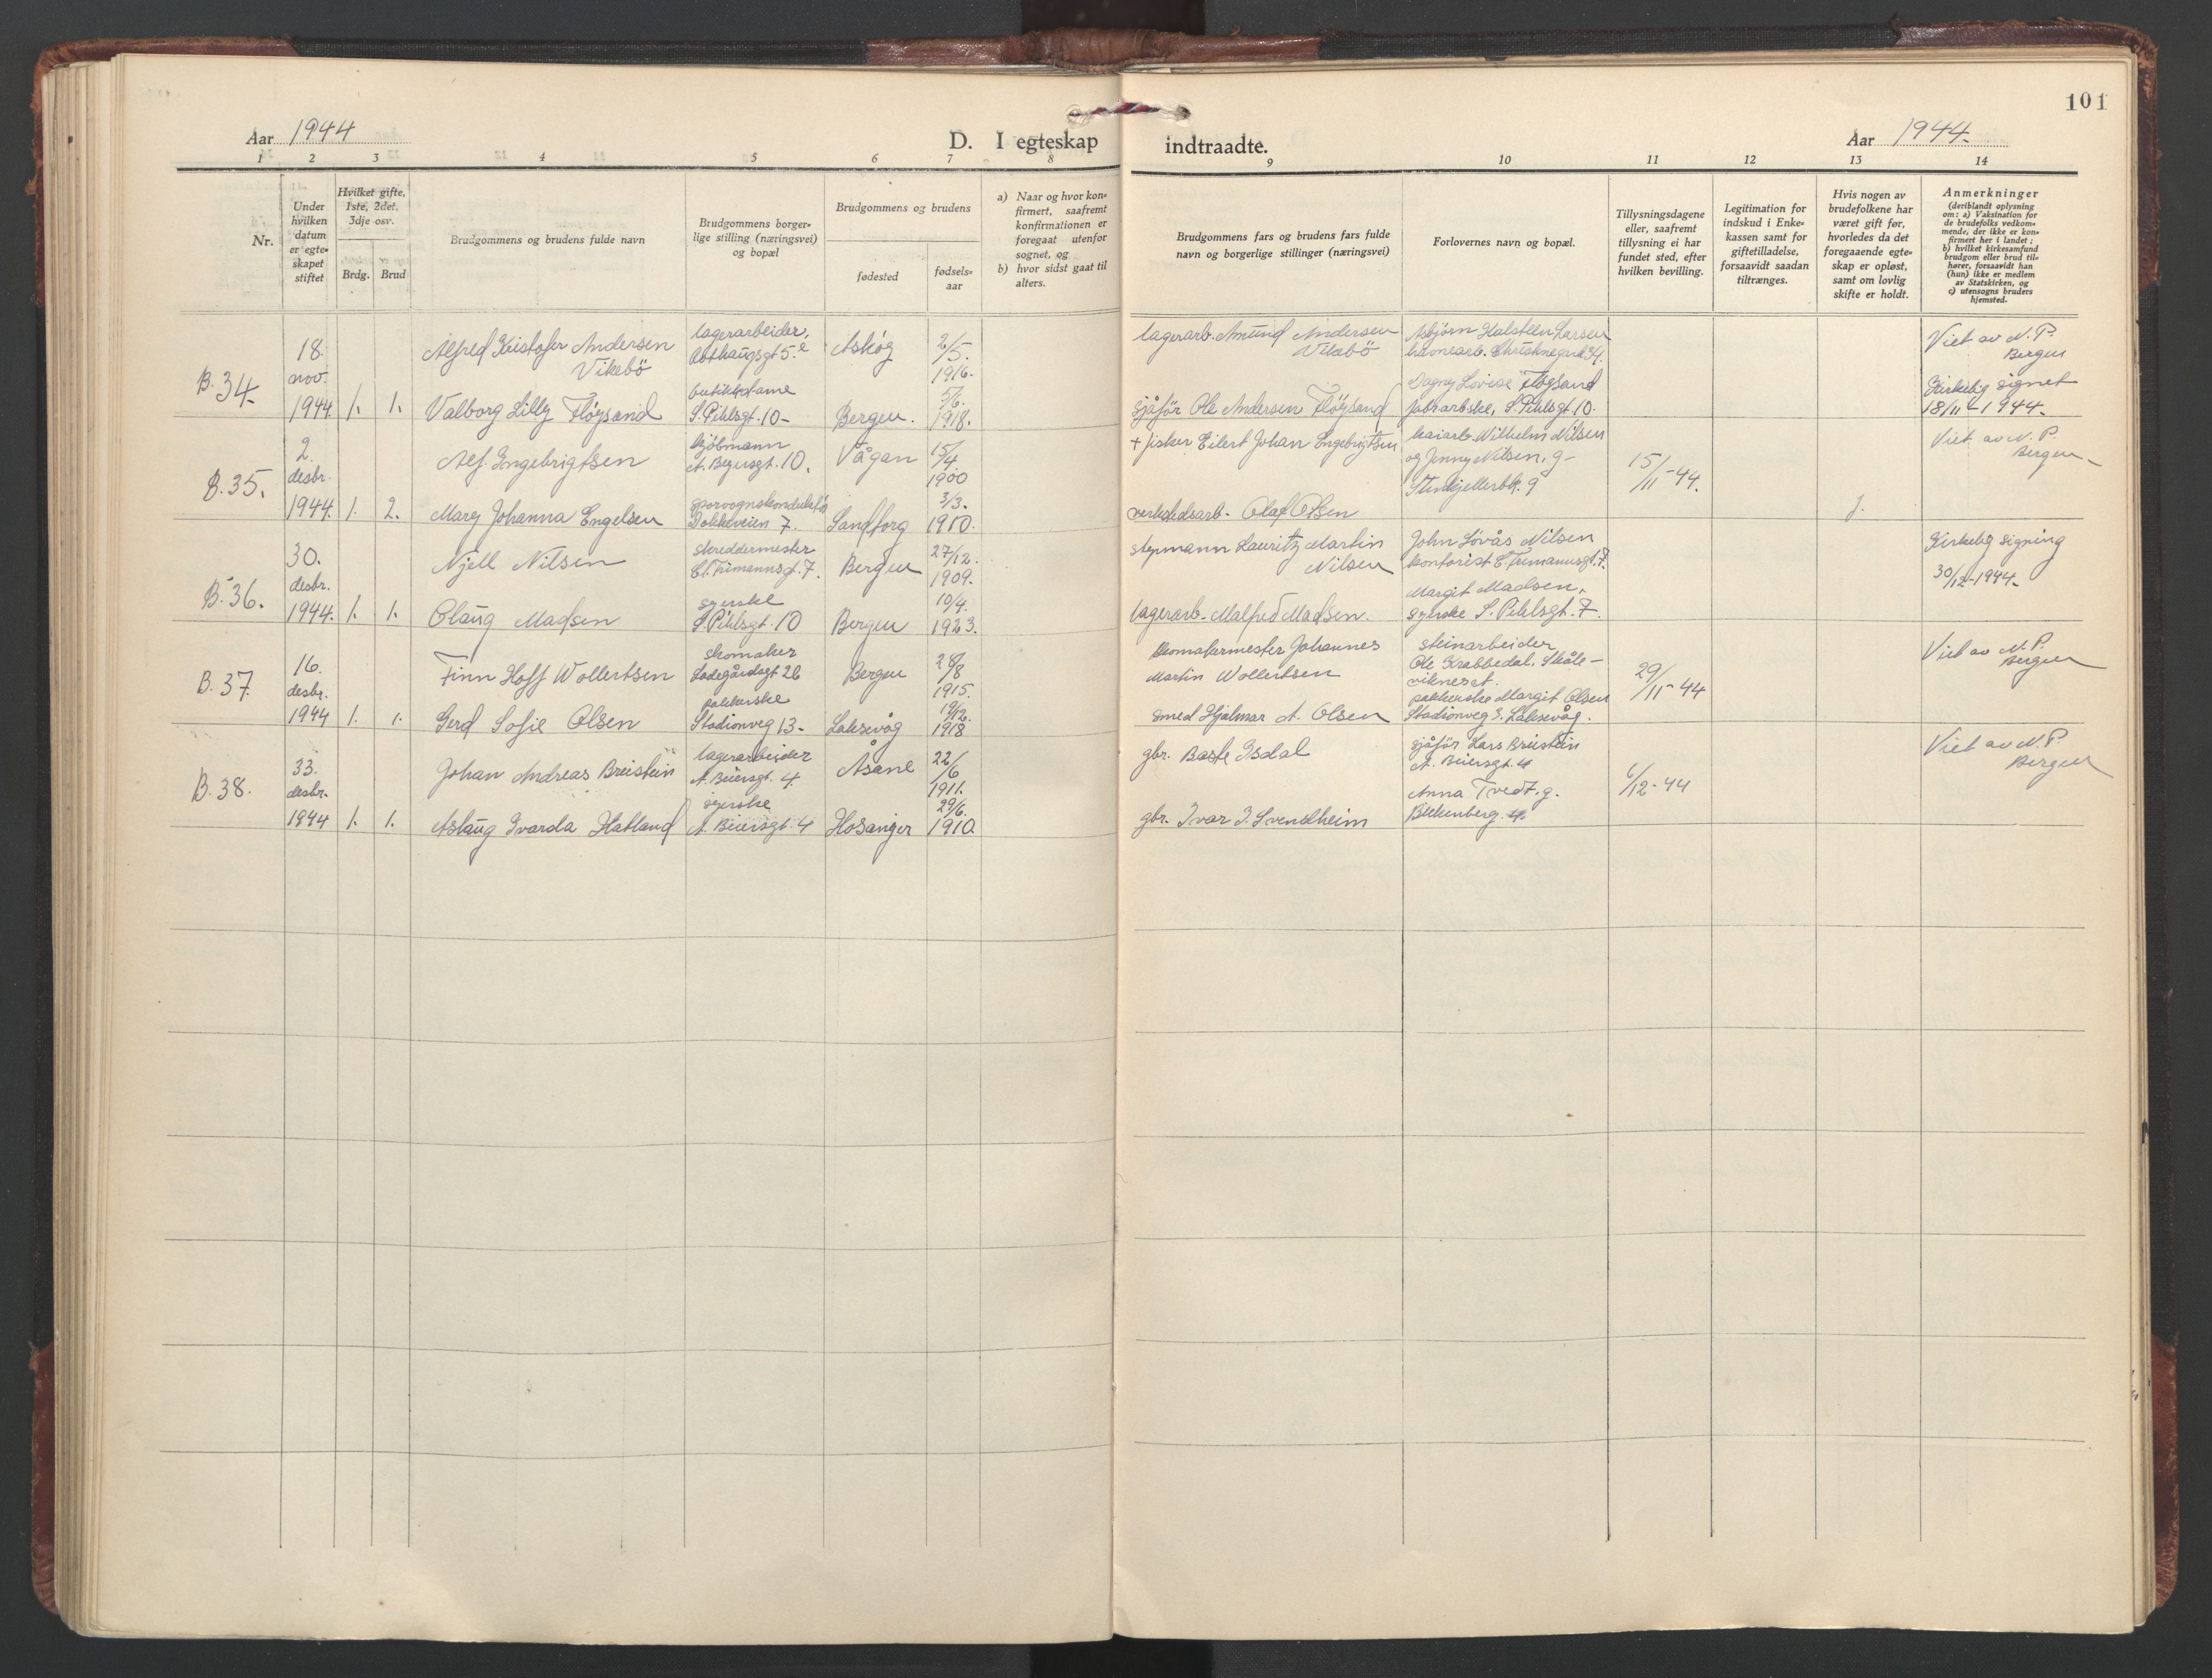 101
Aar 1944
D. I egteskap
indtraadte.
Aar 1944.
1 2 3 4 5 6 7 8
9 10 11 12 13 14
Nr.
Under
hvilken
datum
er egte-
skapet
stiftet
Hvilket gifte,
1ste, 2det,
3dje osv.
Brdg. Brud
Brudgommens og brudens fulde navn
Brudgommens borger-
lige stilling (næringsvei)
og bopæl
Brudgommens og brudens
fødested
fødsels-
aar
a) Naar og hvor kon-
firmert, saafremt
konfirmationen er
foregaat utenfor
sognet, og
b) hvor sidst gaat til
alters.
Brudgommens fars og brudens fars fulde
navn og borgerlige stillinger (næringsvei)
Forlovernes navn og bopæl.
Tillysningsdagene
eller, saafremt
tillysning ei har
fundet sted, efter
hvilken bevilling.
Legitimation for
indskud i Enke-
kassen samt for
giftetilladelse,
forsaavidt saadan
tiltrænges.
Hvis nogen av
brudefolkene har
været gift før,
hvorledes da det
foregaaende egte-
skap er opløst,
samt om lovlig
skifte er holdt.
Anmerkninger
(deriblandt oplysning
om: a) Vaksination for
de brudefolks vedkom-
mende, der ikke er kon-
firmert her i landet;
b) hvilket kirkesamfund
brudgom eller brud til-
hører, forsaavidt han
(hun) ikke er medlem
av Statskirken, og
c) utensogns bruders
hjemsted.
B. 34.
18.
nov.
1944
1. 1.
Alfred Kristofer Andersen
Vikebö
lagerarbeider,
Askøg
2/5.
1916.
Valborg Lilly Flöysand
butikkdame
S. Pihlsgt. 10-
Bergen.
5/6.
1918.
lagerarb. Amund Andersen
Vikebö
sjåför Ole Andersen Flöysand
Asbjörn Halsteen Larsen
Dagny Lovise Flöysand
S. Pihlsgt. 10.
Viet av N. P.
Bergen
Kirkelig signet
18/11-1944.
B. 35.
2.
desbr.
1944.
1. 2.
Alf Engebrigtsen
A. Beyersgt. 10.
Vågan
15/4
1900
Mary Johanna Engelsen
Dokkeveien 7.
Sandborg
3/3.
1910.
+ fisker Eilert Johan Engebrigtsen
verkstedsarb. Olaf Olsen
kaiarb. Wilhelm Nilsen
og Jenny Nilsen, g-
Stinkjellerbk. 9
15/11-44.
Viet av N. P.
Bergen
B. 36.
30.
desbr.
1944.
1. 1.
Njell Nilsen
skreddermester
Cl. Frimannsgt. 7.
Bergen
27/12.
1909.
Olaug Madsen
syerske
S. Pihlsgt. 10
Bergen
10/4.
1923.
styrmann Lauritz Martin
Nilsen
lagerarb. Malfred Madsen.
John Lövås Nilsen
kontorist C. Frimannsgt. 7.
Margit Madsen,
syerske S. Pihlsgt. 7.
Kirkelig signing
30/12-1944.
B. 37.
16.
desbr.
1944
1. 1.
Finn Hoff Wollertsen
skomaker
Ladegårdsgt 26
Bergen
28/8
1915.
Gerd Sofie Olsen
pakkerske
Stadionveg 13-
Laksevåg
19/12.
1918
skomakermester Johannes
Martin Wollertsen
smed Hjalmar A. Olsen
steinarbeider
Ole Krabbedal, Skåle-
vikneset.
pakkerske Margit Olsen
Stadionveg 3. Laksevåg.
29/11-44
Viet av N. P.
Bergen
B. 38.
33.
desbr.
1944
1. 1.
Johan Andreas Breistein
lagerarbeider
A. Beiersgt. 4.
Åsane
22/6
1911.
Aslaug Ivarda Hatland
syerske
A. Beiersgt. 4
Hosanger
29/6.
1910.
gbr. Baste Isdal
gbr. Ivar I. Svendheim
sjåför Lars Breistein
A. Beiersgt. 4
Anna Tvedt. g.
Blekenberg.
6/12-44
Viet av N. P.
Bergen